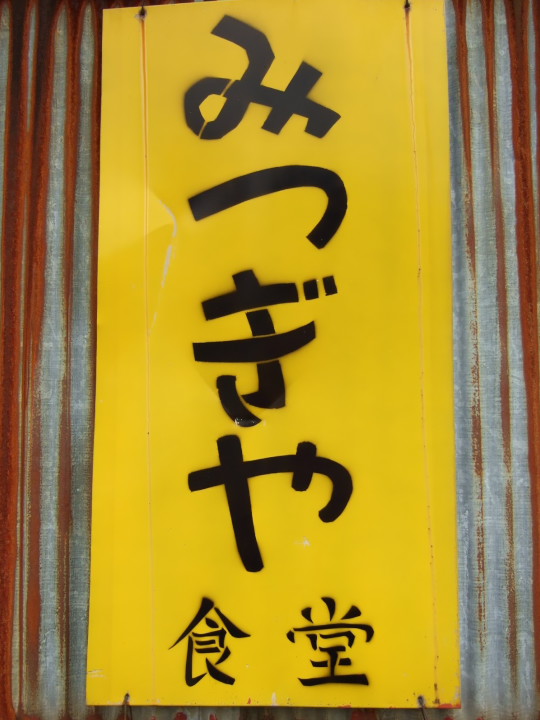 みつぎや
食堂